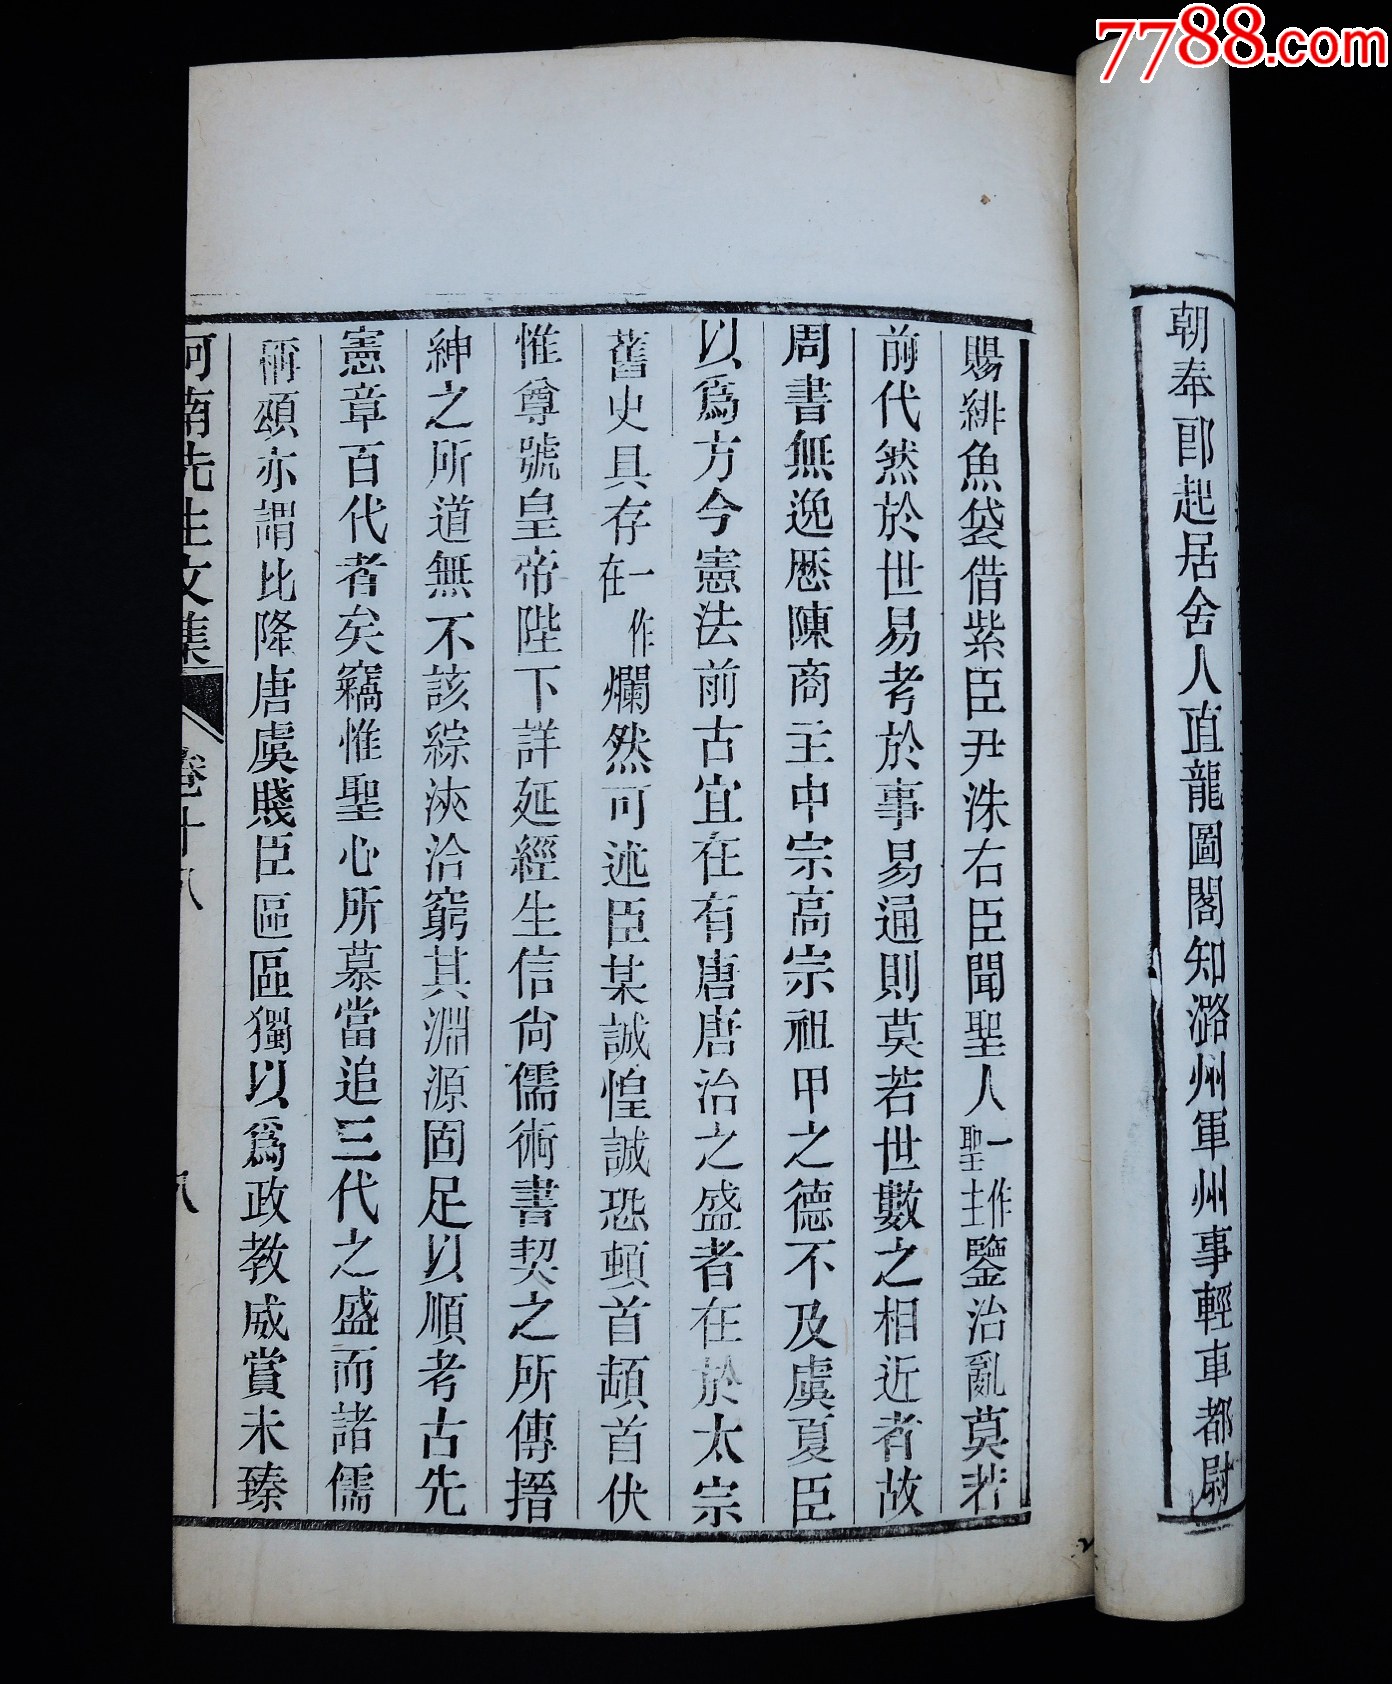 7788.com
朝奉郎起居舍人直龍圖閣知潞州軍州事輕車都尉
賜緋魚袋借紫臣尹洙右臣聞聖人一作聖主鑒治亂莫若
前代然於世易考於事易通則莫若世數之相近者故
周書無逸厯陳商主中宗高宗祖甲之德不及虞夏臣
以爲方今憲法前古宜在有唐唐治之盛者在於太宗
舊史具存一作在爛然可述臣某誠惶誠恐頓首頓首伏
惟尊號皇帝陛下詳延經生信尙儒術書契之所傳搢
紳之所道無不該綜浹洽窮其淵源固足以順考古先
憲章百代者矣竊惟聖心所慕當追三代之盛而諸儒
稱頌亦謂比隆唐虞賤臣區區獨以爲政教威賞未臻
河南先生文集 卷十八 八